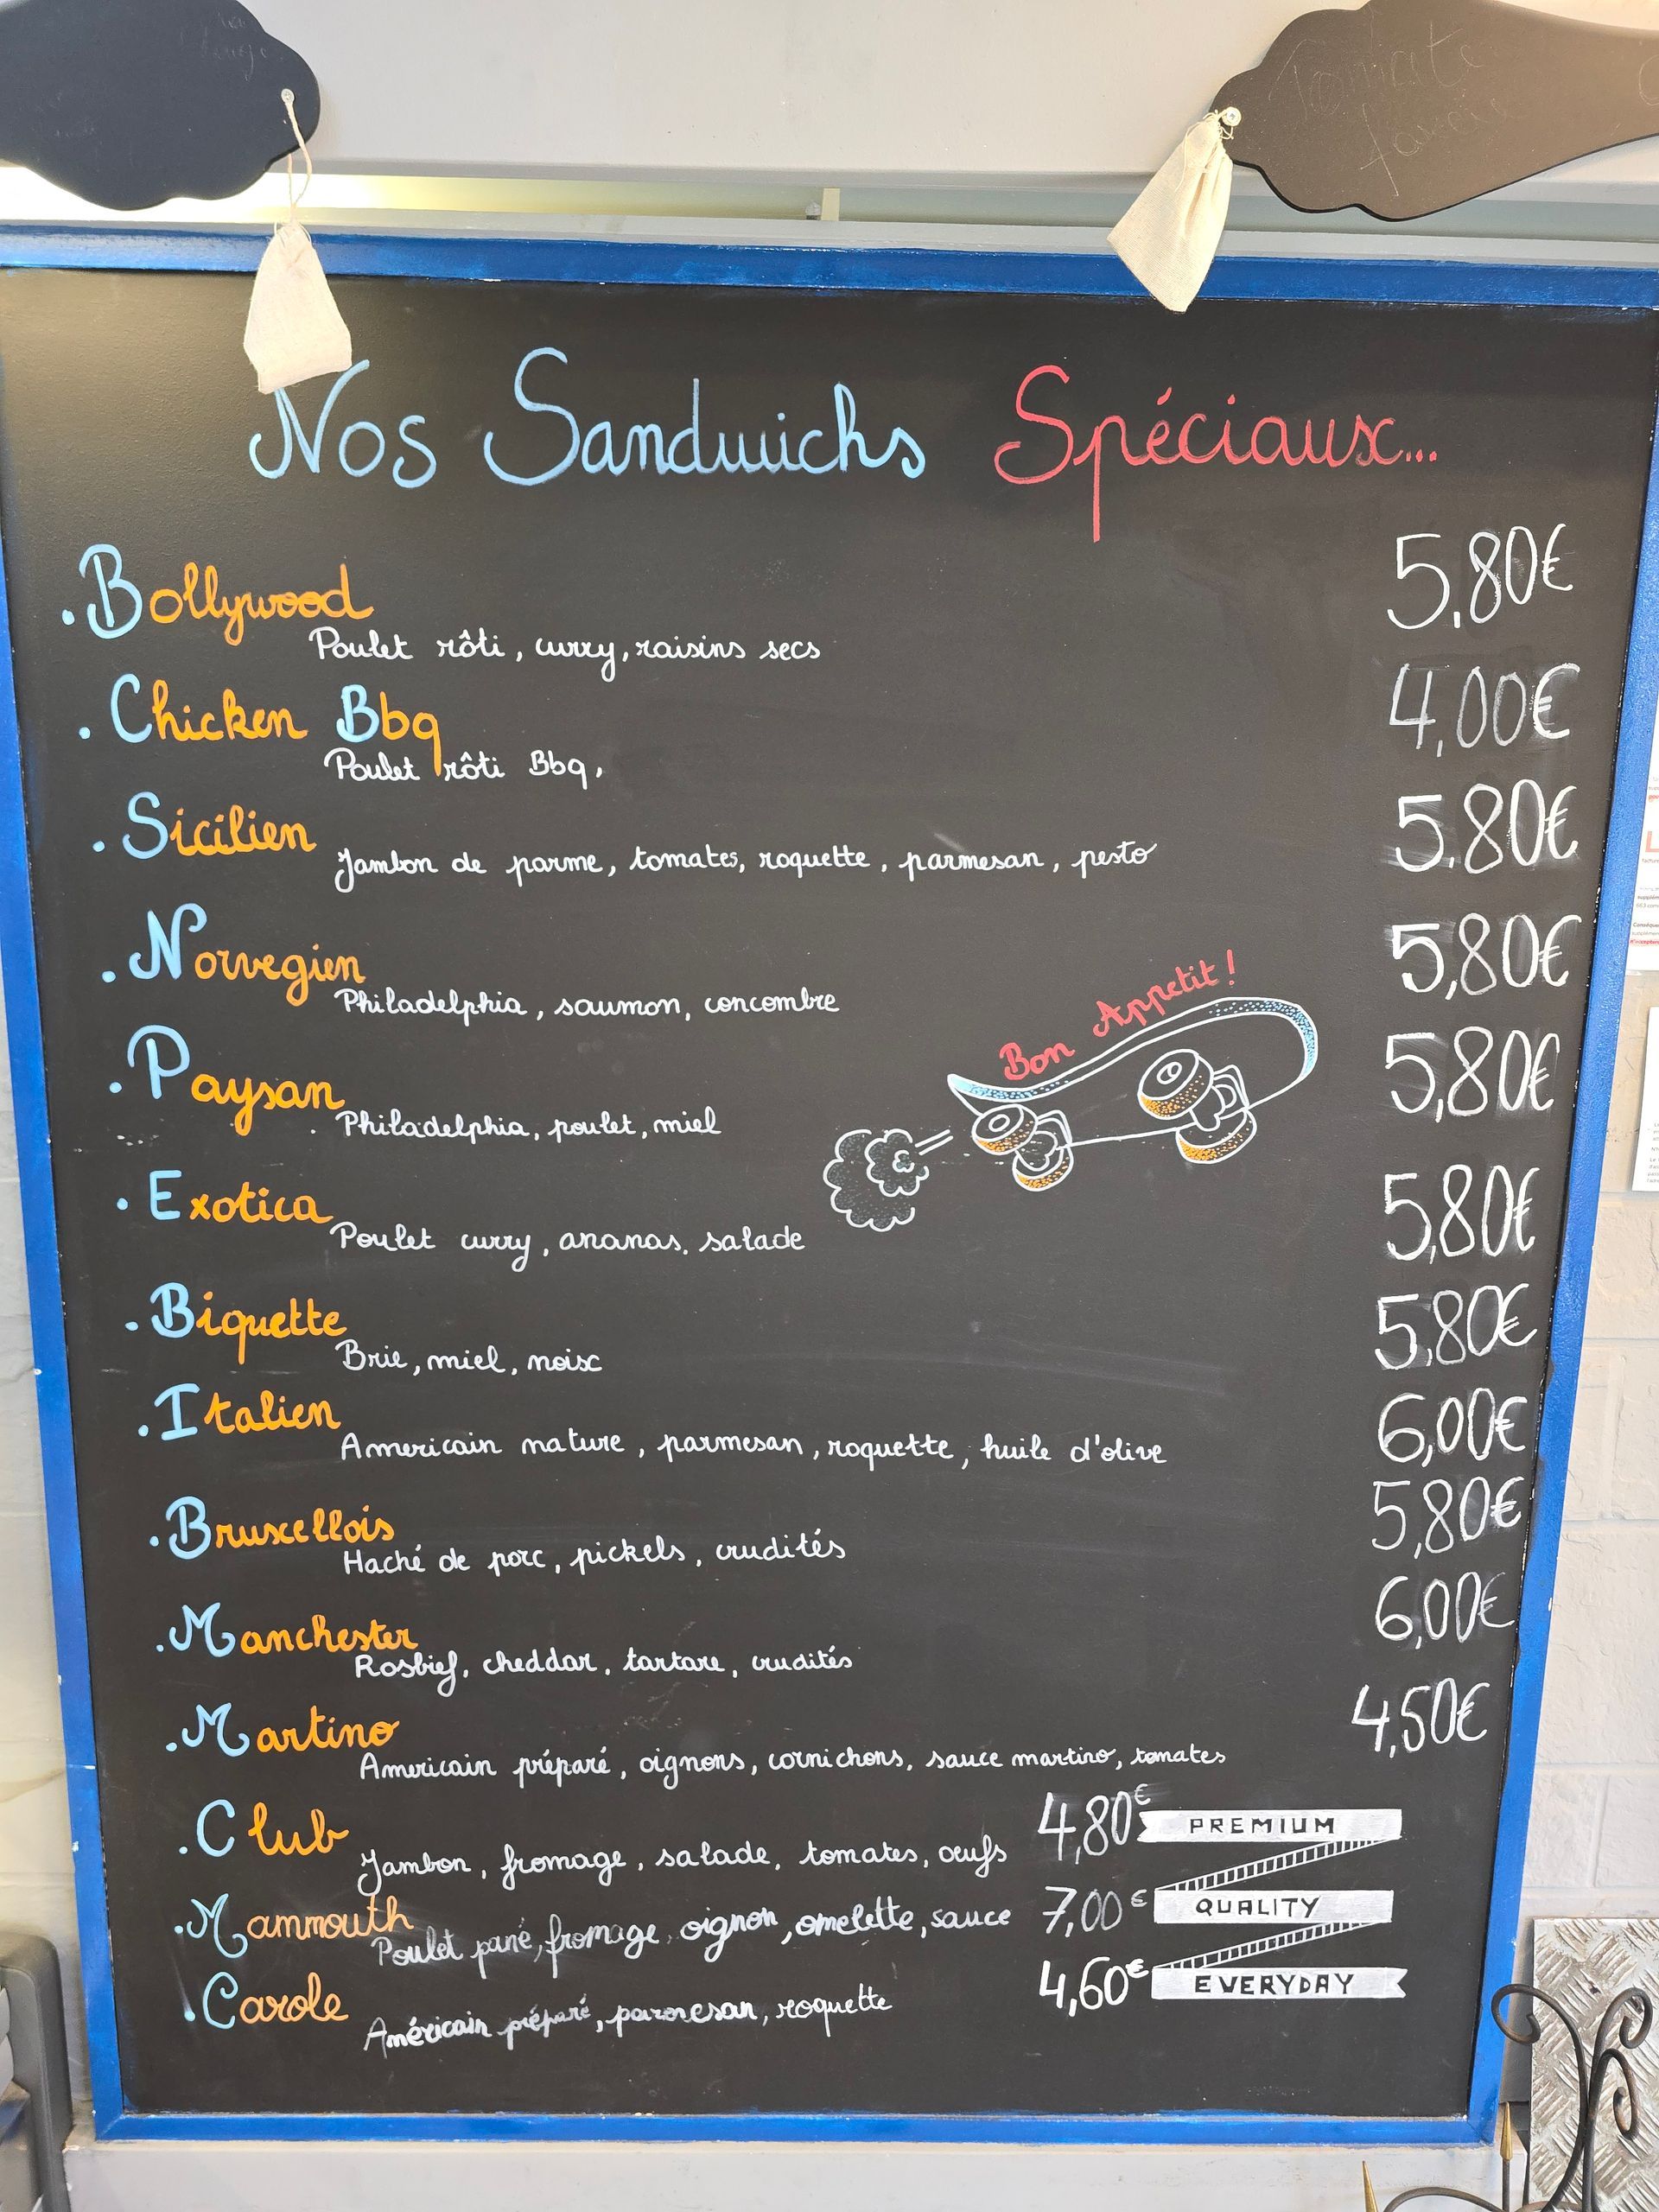 Nos Sandwichs Spéciaux...
.Bollywood 5,80€
Poulet rôti, curry, raisins secs
.Chicken Bbq 4,00€
Poulet rôti Bbq,
.Sicilien 5,80€
Jambon de parme, tomates, roquette, parmesan, pesto
.Norvegien 5,80€
Philadelphia, saumon, concombre
Bon Appetit !
.Paysan 5,80€
Philadelphia, poulet, miel
.Exotica 5,80€
Poulet curry, ananas, salade
.Biquette 5,80€
Brie, miel, noix
.Italien 6,00€
Americain nature, parmesan, roquette, huile d'olive
.Bruxellois 5,80€
Haché de porc, pickels, crudités
.Manchester 6,00€
Rosbief, cheddar, tartare, crudités
.Martino 4,50€
Americain préparé, oignons, cornichons, sauce martino, tomates
.Club 4,80€ PREMIUM
Jambon, fromage, salade, tomates, oeufs
.Mammouth 7,00€ QUALITY
Poulet pané, fromage, oignon, omelette, sauce
.Carole 4,60€ EVERYDAY
Américain préparé, parmesan, roquette